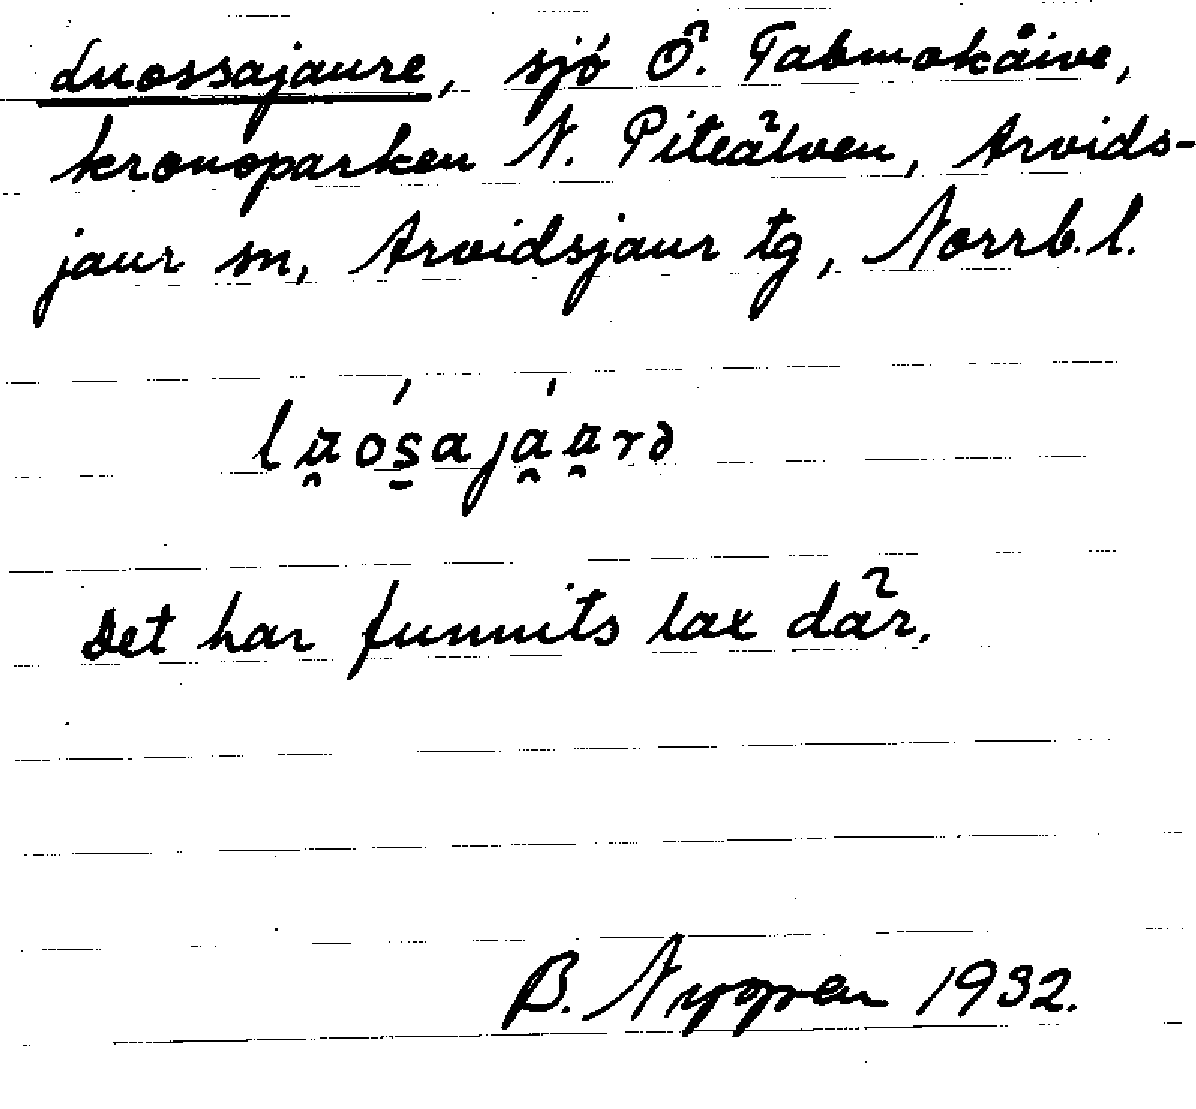 Luossajaure, sjö Ö. Tabmokåive,
kronoparken N. Piteälven, Arvids-
jaur sn, Arvidsjaur tg, Norrb. l.
Det har funnits lax där.
B. Nygren 1932.